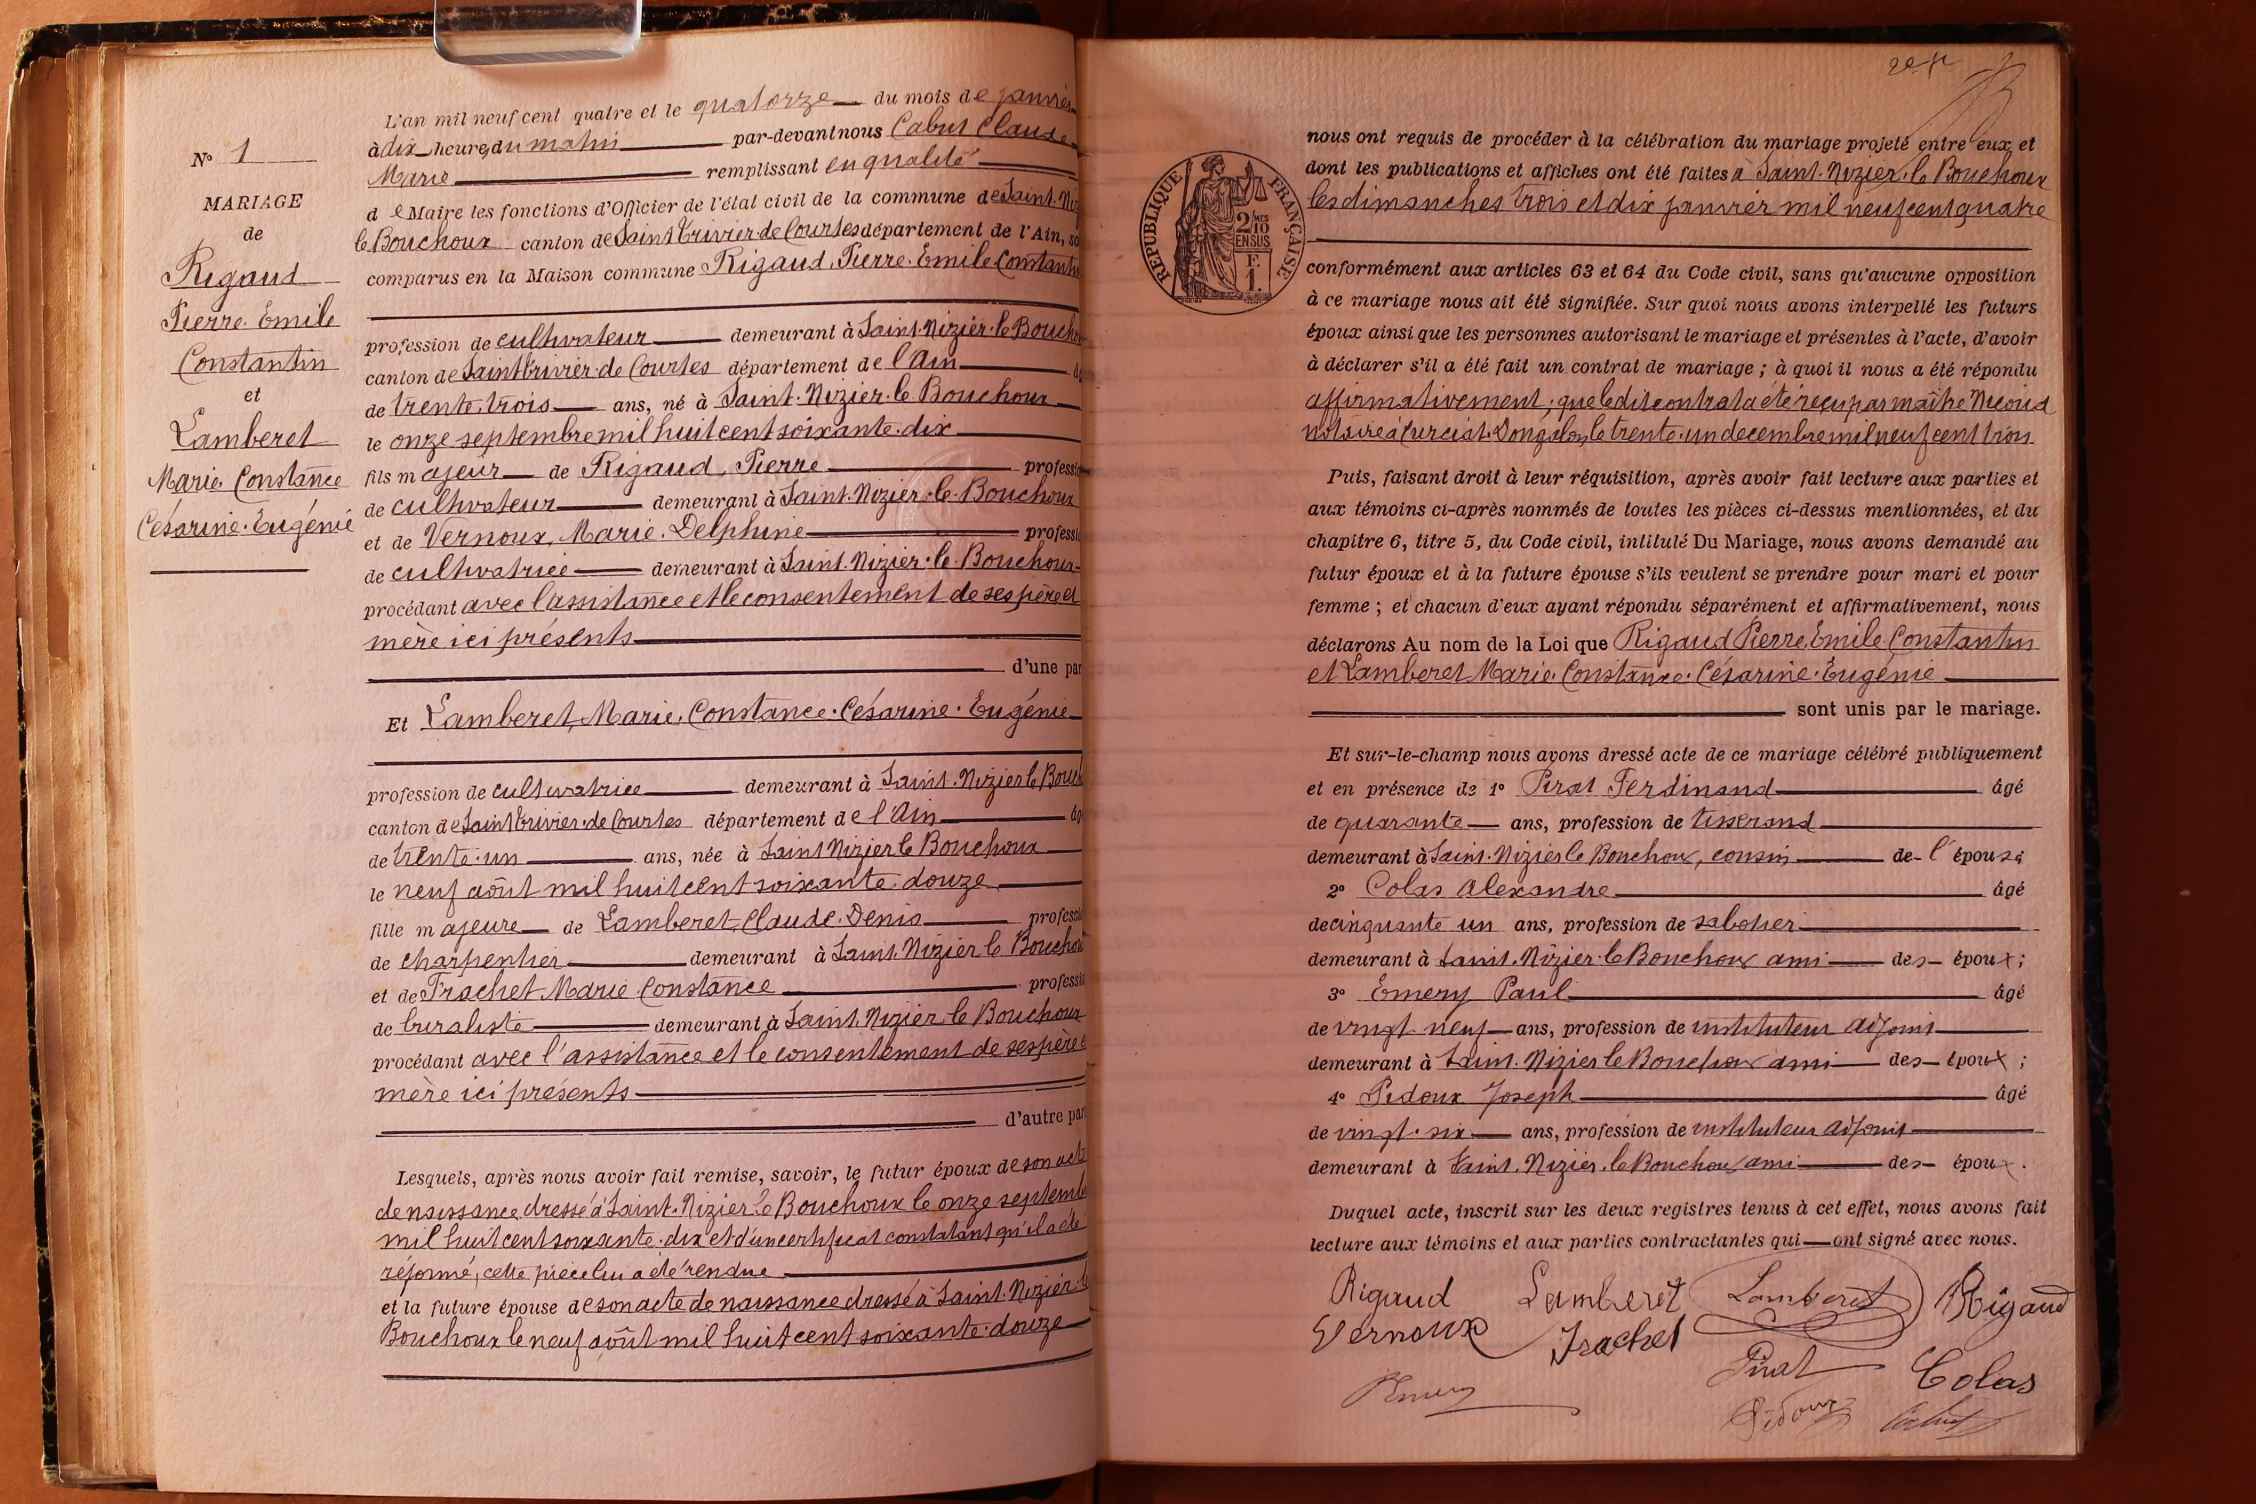 N° 1
MARIAGE
de
Rigaud
Pierre. Emile
Constantin
et
Lamberet
Marie. Constance
Césarine. Eugénie
L'an mil neuf cent quatre et le quatorze du mois de janvier
à dix heures du matin par-devant nous Cabut Claude
Marie remplissant en qualité
de Maire les fonctions d'Officier de l'état civil de la commune de Saint. Niz
le Bouchoux canton de Saint Trivier. de Courtes département de l'Ain, so
comparus en la Maison commune Rigaud, Pierre. Emile Constantin
profession de cultivateur demeurant à Saint. Nizier. le Bouchou
canton de Saint Trivier. de Courtes département de l'Ain
de trente. trois ans, né à Saint. Nizier. le Bouchoux
le onze septembre mil huit cent soixante. dix
fils majeur de Rigaud, Pierre professio
de cultivateur demeurant à Saint. Nizier. le Bouchoux
et de Vernoux, Marie. Delphine professi
de cultivatrice demeurant à Saint. Nizier. le Bouchoux
procédant avec l'assistance et le consentement de ses père et
mère ici présents
d'une par
Et Lamberet, Marie. Constance. Césarine. Eugénie
profession de cultivatrice demeurant à Saint. Nizier le Bouch
canton de Saint Trivier. de Courtes département de l'Ain
de trente. un ans, née à Saint Nizier le Bouchoux
le neuf août mil huit cent soixante. douze
fille majeure de Lamberet, Claude. Denis professi
de charpentier demeurant à Saint. Nizier le Bouchoux
et de Frachet Marie Constance professi
de buraliste demeurant à Saint. Nizier le Bouchoux
procédant avec l'assistance et le consentement de ses père e
mère ici présents
d'autre par
Lesquels, après nous avoir fait remise, savoir, le futur époux de son acte
de naissance dressé à Saint. Nizier le Bouchoux le onze septemb
mil huit cent soixante. dix et d'un certificat constatant qu'il a été
réformé, cette pièce lui a été rendue
et la future épouse de son acte de naissance dressé à Saint. Nizier. le
Bouchoux le neuf août mil huit cent soixante. douze
RÉPUBLIQUE FRANÇAISE
2/10
EN SUS
F.
1.
nous ont requis de procéder à la célébration du mariage projeté entre eux et
dont les publications et affiches ont été faites à Saint. Nizier. le Bouchoux
les dimanches trois et dix janvier mil neuf cent quatre
conformément aux articles 63 et 64 du Code civil, sans qu'aucune opposition
à ce mariage nous ait été signifiée. Sur quoi nous avons interpellé les futurs
époux ainsi que les personnes autorisant le mariage et présentes à l'acte, d'avoir
à déclarer s'il a été fait un contrat de mariage ; à quoi il nous a été répondu
affirmativement, que le dit contrat a été reçu par maître Nicoud
notaire à Curciat. Dongalon le trente. un décembre mil neuf cent trois
Puis, faisant droit à leur réquisition, après avoir fait lecture aux parties et
aux témoins ci-après nommés de toutes les pièces ci-dessus mentionnées, et du
chapitre 6, titre 5, du Code civil, intitulé Du Mariage, nous avons demandé au
futur époux et à la future épouse s'ils veulent se prendre pour mari et pour
femme ; et chacun d'eux ayant répondu séparément et affirmativement, nous
déclarons Au nom de la Loi que Rigaud Pierre Emile Constantin
et Lamberet Marie. Constance. Césarine. Eugénie
sont unis par le mariage.
Et sur-le-champ nous avons dressé acte de ce mariage célébré publiquement
et en présence de 1° Pirat Ferdinand âgé
de quarante ans, profession de tisserand
demeurant à Saint. Nizier le Bouchoux, cousin de l'épouse
2° Colas Alexandre âgé
de cinquante un ans, profession de sabotier
demeurant à Saint. Nizier. le Bouchoux ami des époux ;
3° Emery Paul âgé
de vingt. neuf ans, profession de instituteur adjoint
demeurant à Saint. Nizier le Bouchoux ami des époux ;
4° Pidoux Joseph âgé
de vingt. six ans, profession de instituteur adjoint
demeurant à Saint. Nizier. le Bouchoux ami des époux.
Duquel acte, inscrit sur les deux registres tenus à cet effet, nous avons fait
lecture aux témoins et aux parties contractantes qui ont signé avec nous.
Rigaud Lamberet Lamberet Rigaud
Vernoux Frachet
Pirat Colas
PEmery Pidoux Cabut